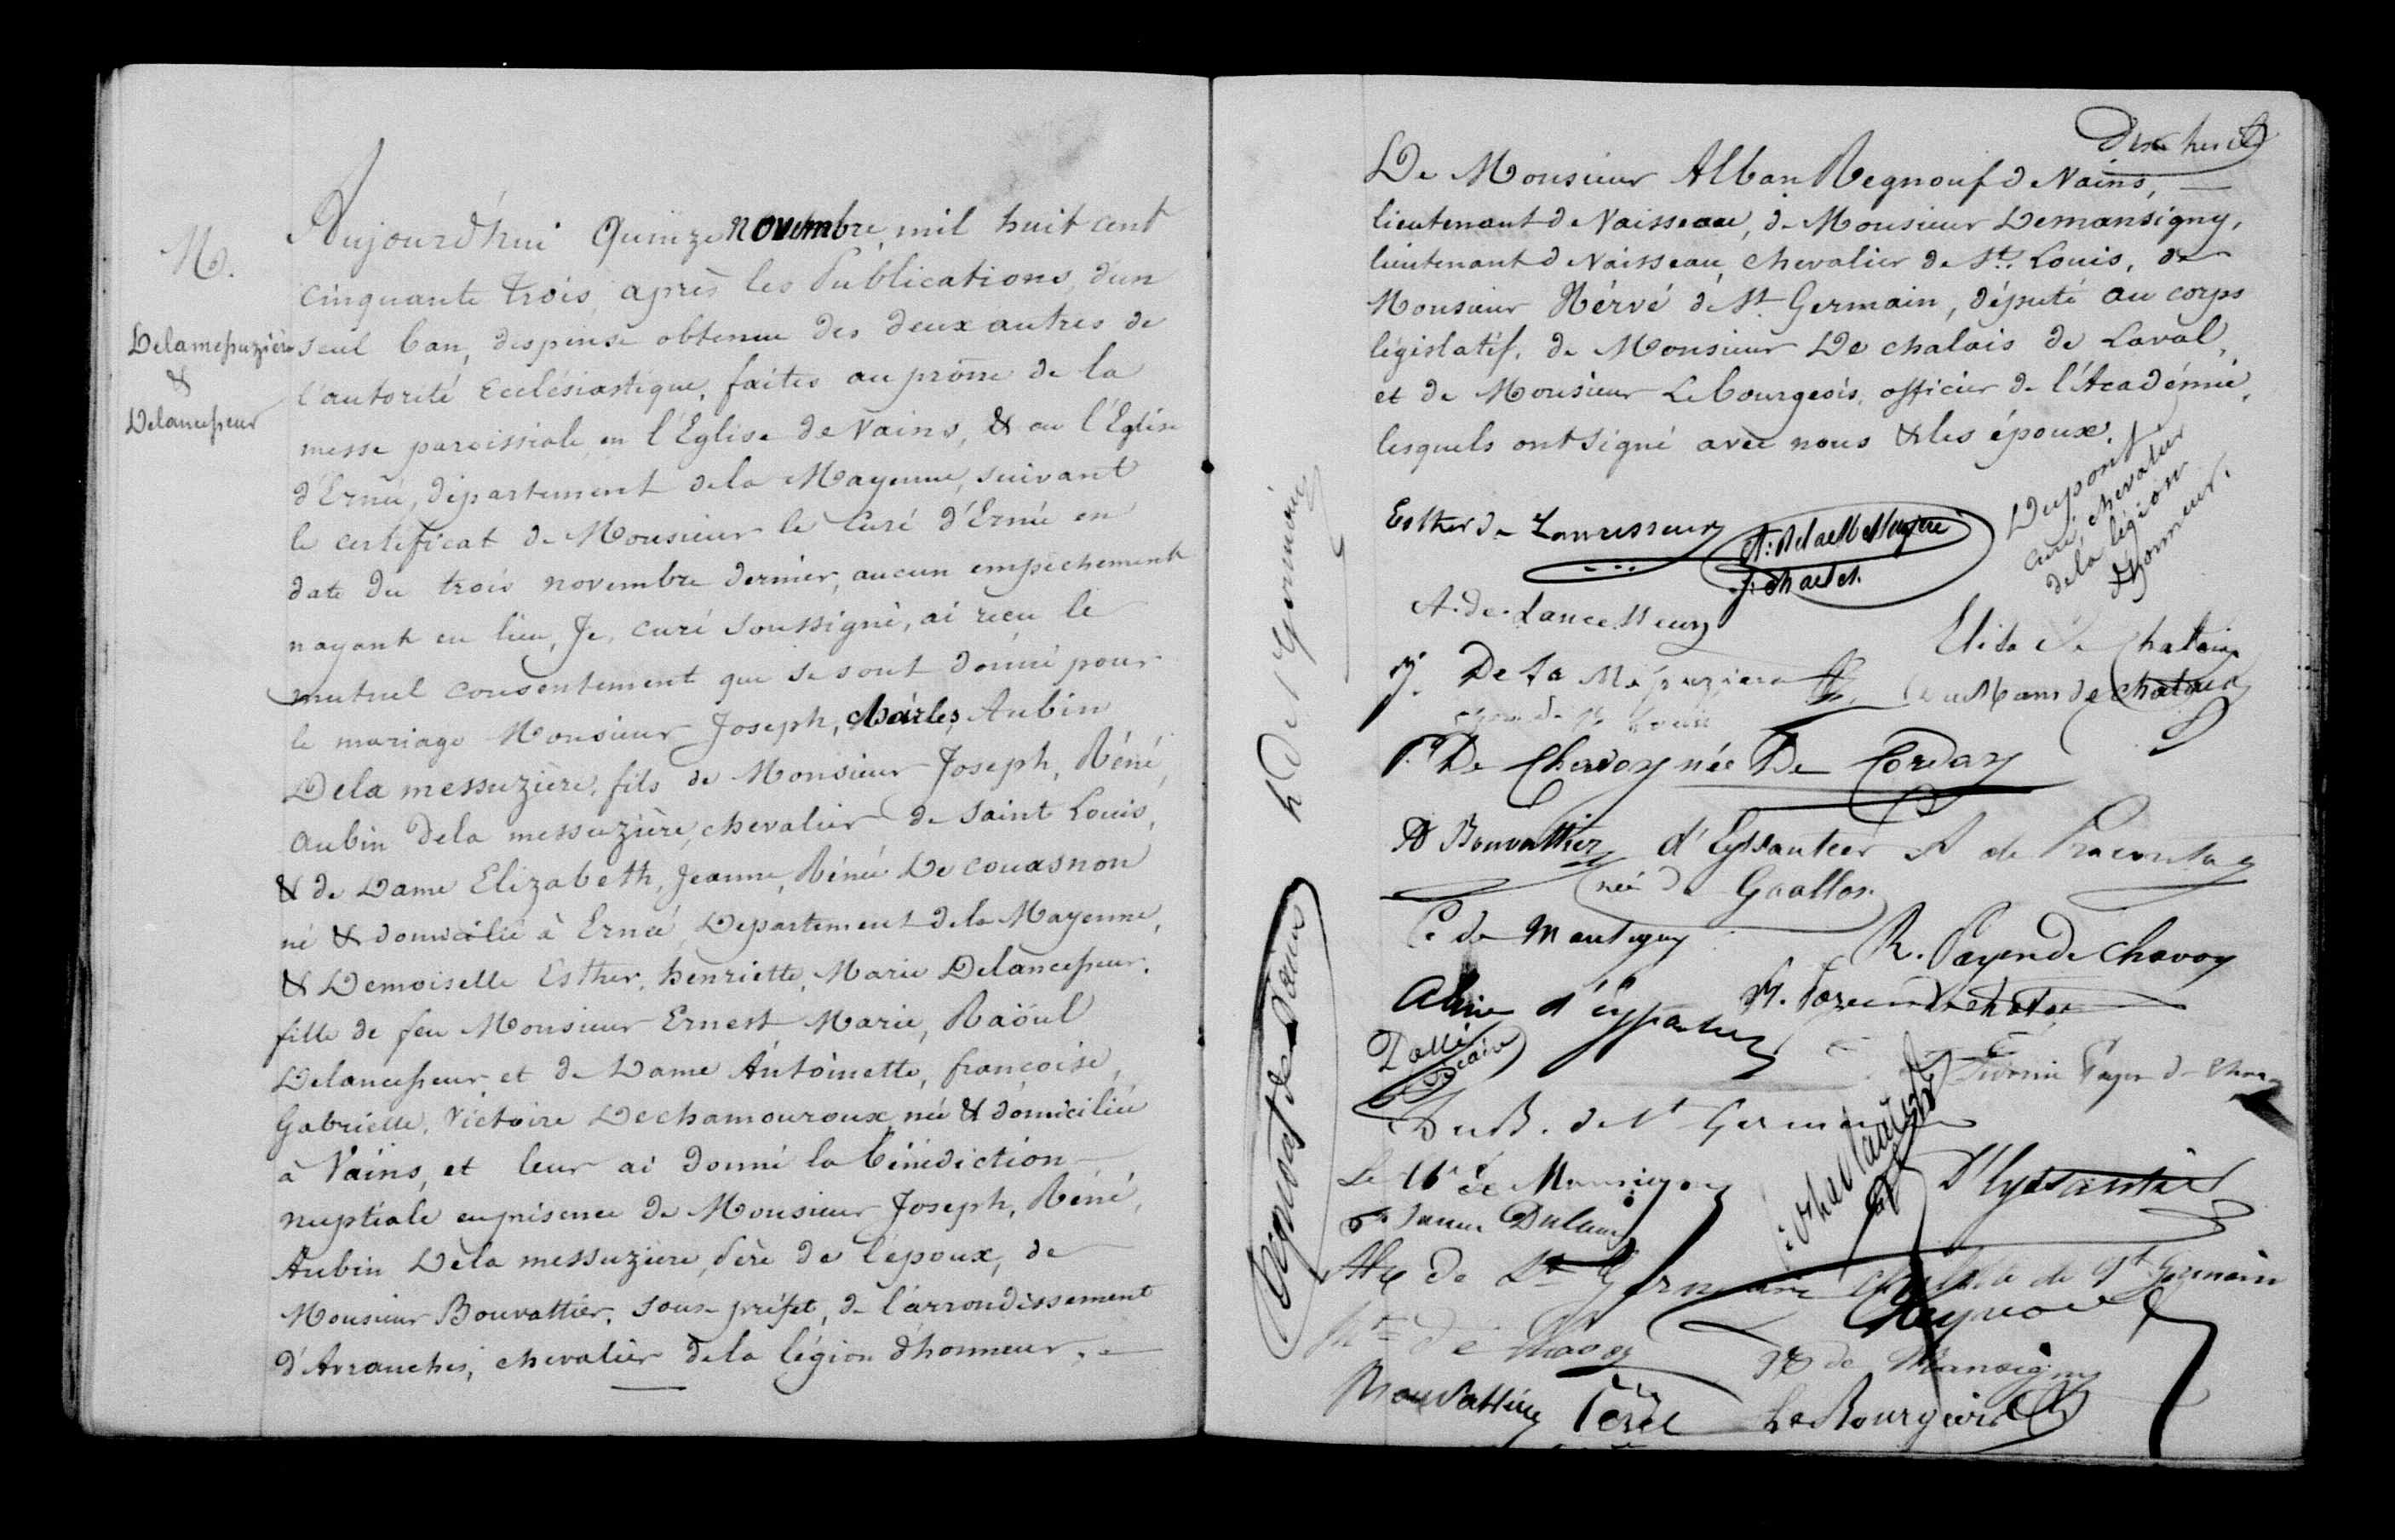 M.
Delamessuzière
&
Delancesseur
Aujourd'hui Quinze novembre, mil huit cent
cinquante trois, après les Publications, d'un
seul ban, dispense obtenue des deux autres de
l'autorité Ecclésiastique, faites au prône de la
messe paroissiale en l'Eglise de Vains, & en l'Eglise
d'Ernée, département de la Mayenne, suivant
le certificat de Monsieur le Curé d'Ernée en
date du trois novembre dernier, aucun empêchement
nayant eu lieu, Je, curé soussigné, ai reçu le
mutuel consentement que se sont donné pour
le mariage Monsieur Joseph, Charles, Aubin
Dela messuzière, fils de Monsieur Joseph, Réné,
Aubin Dela messuzière, chevalier de Saint Louis,
& de Dame Elizabeth, Jeanne, Rénée De couasnon
né & domicilié à Ernée, Departement de la Mayenne,
& Demoiselle Esther, henriette, Marie Delancesseur,
fille de feu Monsieur Ernest Marie, Raöul
Delancesseur et de Dame Antoinette, françoise,
Gabrielle, Victoire Dechamouroux, née & domiciliée
à Vains, et leur ai donné la bénédiction
nuptiale en présence de Monsieur Joseph, Réné,
Aubin Dela messuzière, père de l'époux, de
Monsieur Bouvattier, sous-préfet, de l'arrondissement
d'Avranches, chevalier dela légion d'honneur,
De Monsieur Alban Regnouf de Vains,
lieutenant de Vaisseau, de Monsieur Demansigny,
lieutenant de Vaisseau, chevalier de St. Louis, de
Monsieur Hérvé de St Germain, député au corps
législatif, de Monsieur De chalais de Laval,
et de Monsieur Lebourgeois, officier de l'Académie,
lesquels ont signé avec nous & les époux.
Dupont
curé, chevalier
dela légion
d'honneur.
Esther de Lancesseur
J. Charles
A. de Lancesseur
Elisa de Chalais
J. De La Messuzière
P. De Chavoy née De Corday
Bouvattier d'Eyssautier A de Pracontal
née de Gaallon
C de Mansigny
R. Payen de Chavoy
Aline d'Eyssautier
DuB. de St Germain
d'Eyssautier
Regnouf de Vains
de St Germain
de St Germain
de Chavoy
de Mansigny
Bouvattier
LeBourgeois